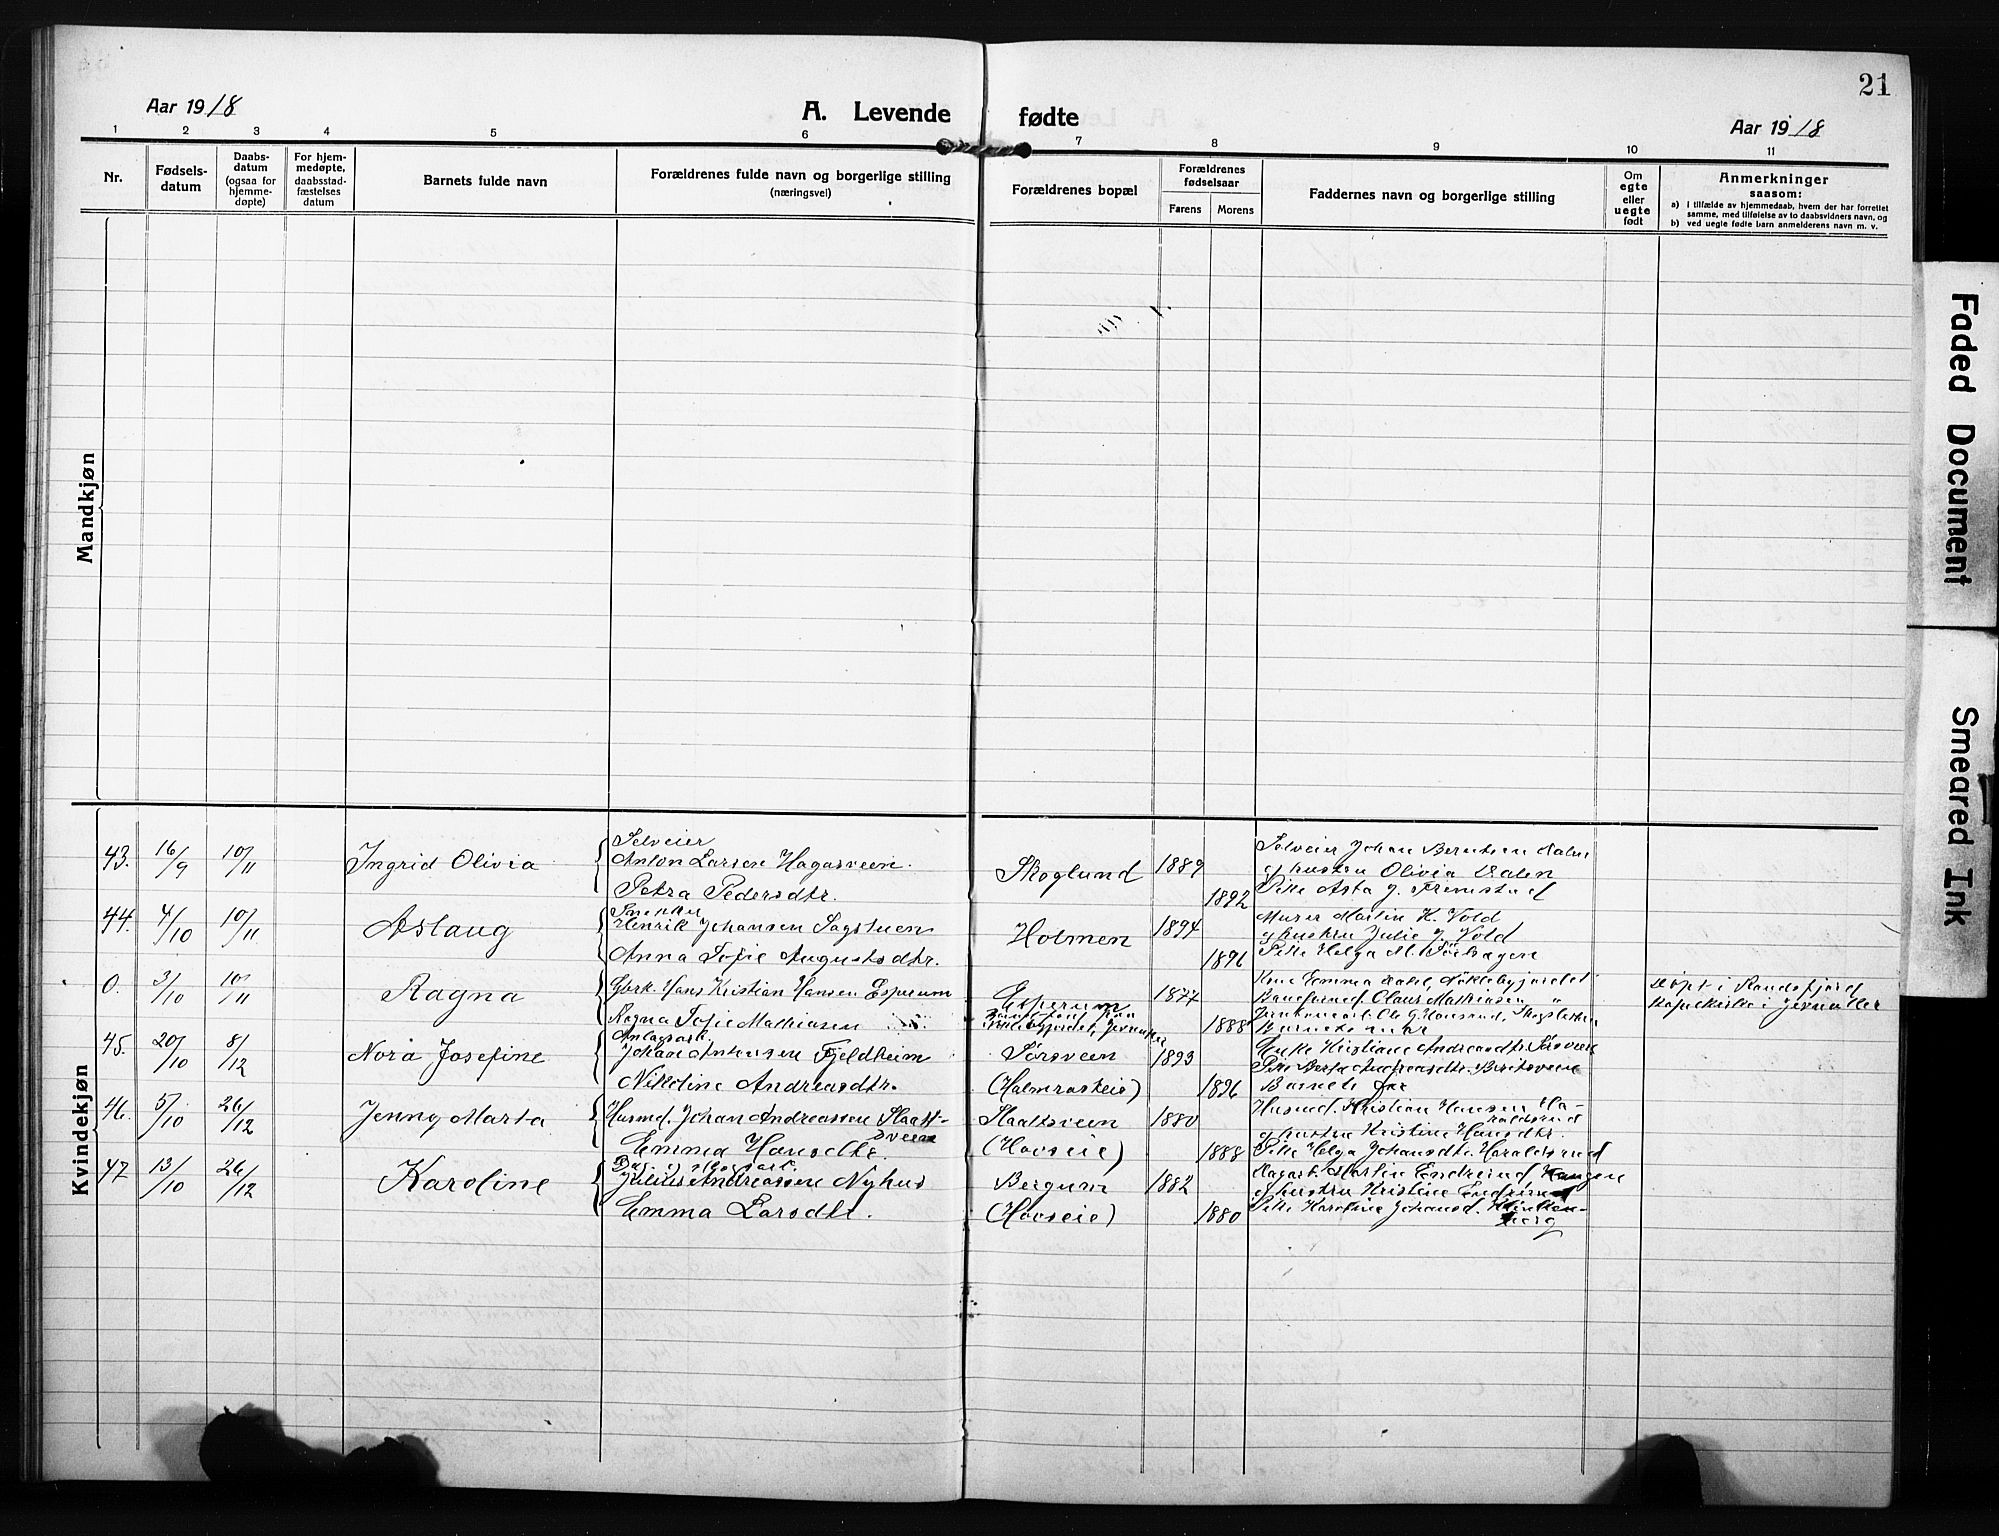 21
Aar 1918
A. Levende fødte
Aar 1918
1 2 3 4 5 6 7 8 9 10 11
Nr.
Fødsels-
datum
Daabs-
datum
(ogsaa for
hjemme-
døpte)
For hjem-
medøpte,
daabsstad-
fæstelses
datum
Barnets fulde navn
Forældrenes fulde navn og borgerlige stilling
(næringsvei)
Forældrenes bopæl
Forældrenes
fødselsaar
Farens Morens
Faddernes navn og borgerlige stilling
Om
egte
eller
uegte
født
Anmerkninger
saasom:
a) i tilfælde av hjemmedaab, hvem der har forrettet
samme, med tilføielse av to daabsvidners navn, og
b) ved uegte fødte barn anmelderens navn m. v.
Mandkjøn
Kvindekjøn
43. 16/9 10/11 Ingrid Olivia
Selveier
Anton Larsen Hagasveen.
Petra Pedersdtr.
Skoglund 1889 1892
Selveier Johan Berntsen Dalen
g hustru Olivia Dalen
Pike Asta g. Fremstad
44. 4/10 10/11 Aslaug
Snekker
Henrik Johansen Sagstuen
Anna Sofie Augustsdtr.
Holmen 1894 1896
Murer Martin K. Vold
g hustru Julie J. Vold
Pike Helga M.
0. 3/10 10/11 Ragna
Gbrk. Hans Kristian Hansen Esperum
Ragna Sofie Mathiasen
Esperum
1877 1888
Kone Emma Dahl,
Olaus Mathiasen "
Barnets mor
Døpt i Randsfjord
kapelkirke i Jevnaker
45. 20/10 8/12 Nora Josefine
Anlægsarb.
Johan Antonsen Fjeldheim
Nikoline Andreasdtr.
Sørsveen
1893 1896
Enke Kristiane Andreasdtr. Sørsveen
Barnets far
46. 5/10 26/12 Jenny Marta
Husmd. Johan Andreassen Slaatt-
sveen
Emma Hansdtr.
Slaattsveen
(Hovseie)
1880 1888
Husmd. Kristian Hansen Ha-
raldsrud
g hustru Kristine Hansdtr.
Pike Helga Johansdtr. Haraldsrud
47 13/10 26/12 Karoline
Julius Andreassen Nyhus
Emma Larsdtr.
Bergum
(Hovseie)
1882 1880
Dagarb. Martin Endrerud, Haugen
g hustru Kristine Endrerud
Pike Karoline Johansd.
berg
Faded Document
Smeared Ink